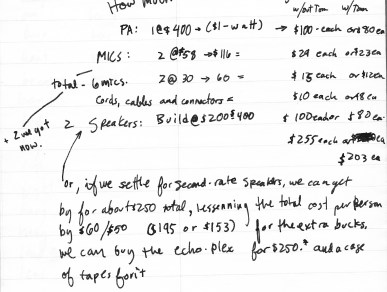 How mu
w/out Tom w/Tom
PA: 1@$400 → ($1-watt) → $100 each or $80 ea
MICS: 2 @ $58 → $116 = $29 each or $23 ea
total - 6 mics. 2 @ 30 → 60 = $15 each or $12 ea
Cords, cables and connectors = $10 each or 8 ea
+ 2 we got now.
2 Speakers: Build @ $200 $400 $100 each or $80 ea
$255 each or ea
$203 ea
or, if we settle for second-rate speakers, we can get
by for about $250 total, lessenning the total cost per person
by $60/$50 ($195 or $153) for the extra bucks,
we can buy the echo-plex for $250.* and a case
of tapes for it